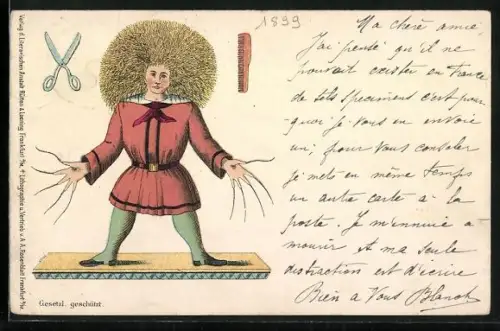 1899
Ma chère amie,
J'ai pensé qu'il ne
pouvait exister en
de tels specimens c'est pour
quoi je vous en envoie
un, pour vous consoler
je mets en même temps
un autre carte à la
poste. Je m'ennuie à
mourir et ma seule
distraction est d'écrire
Bien à Vous Blanch
Gesetzl. geschützt.
Verlag d. Literarischen Anstalt Rütten & Loening, Frankfurt a/M. Lithographie u. Vertrieb v. A. A. Rosenblatt Frankfurt a/M.